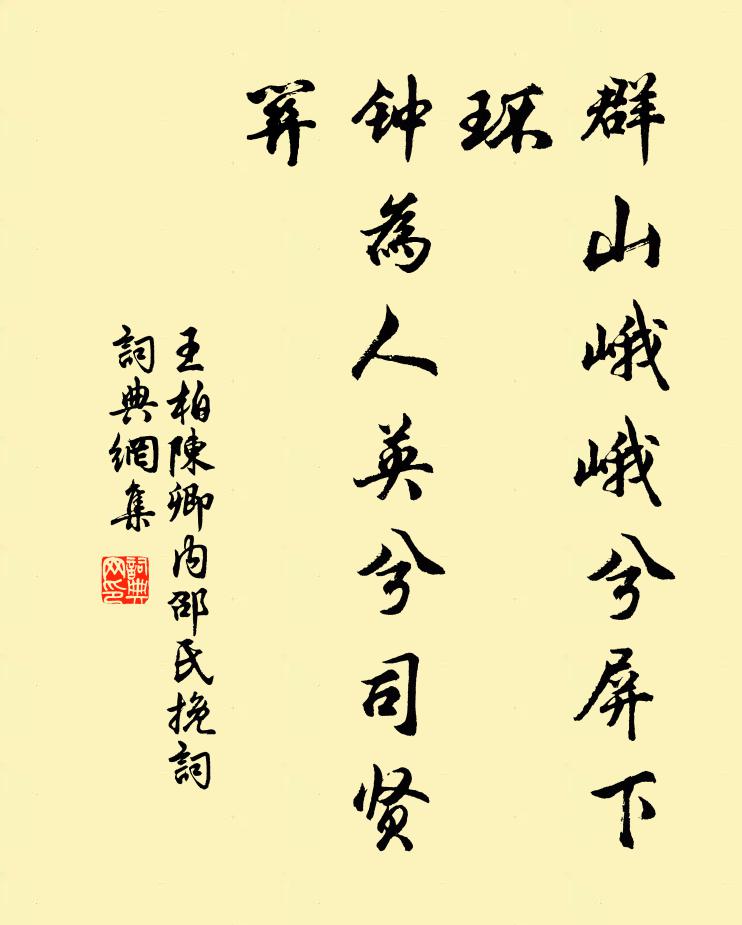 群山峨峨兮屏下
环
钟為人英兮司贤
关
王柏陳卿内邵氏挽詞
詞典網集
詞典网印